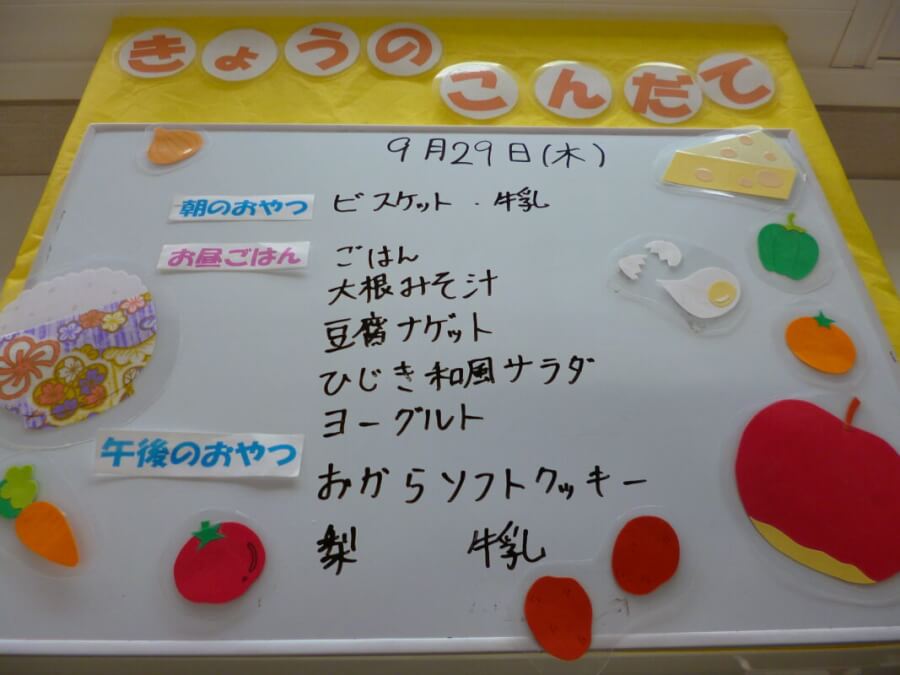 きょうの
こんだて
9月29日(木)
朝のおやつ ビスケット . 牛乳
お昼ごはん ごはん
大根みそ汁
豆腐ナゲット
ひじき和風サラダ
ヨーグルト
午後のおやつ おからソフトクッキー
梨 牛乳